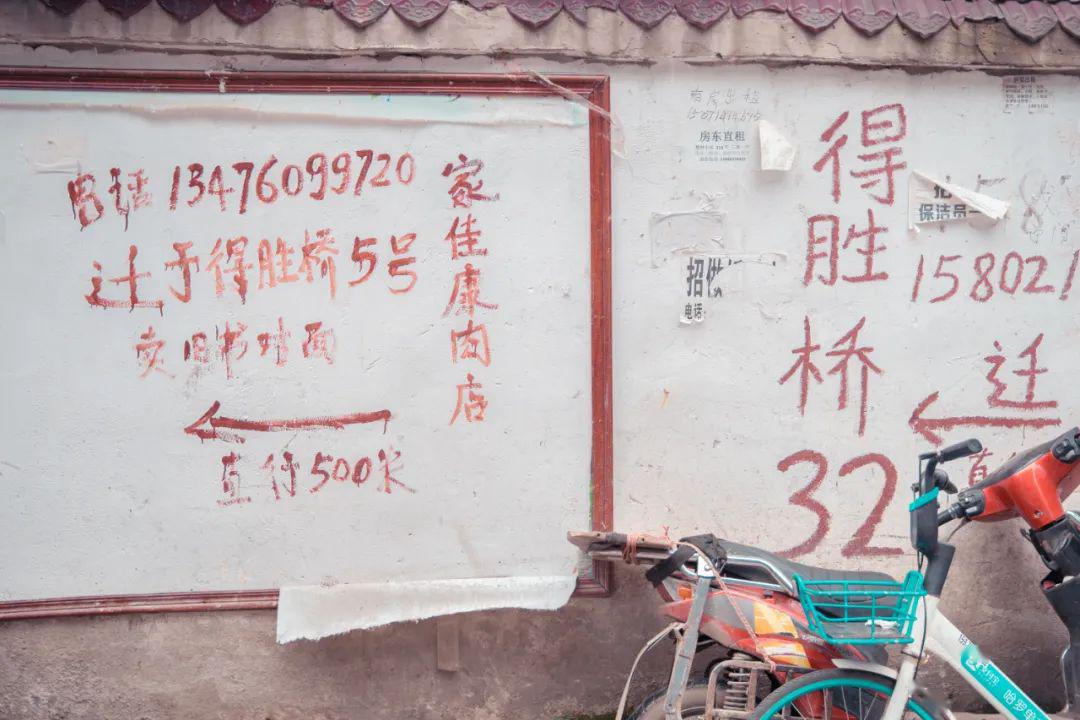 家佳康肉店
电话 13476099720
迁于得胜桥5号
卖旧书对面
直行500米
有房出租
房东直租
得胜桥
32
保洁员
158021
迁
直
招做
电话:
哈罗单